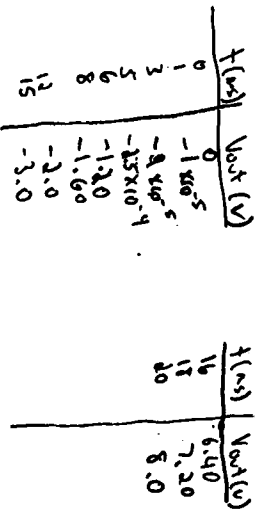 t(ms) Vout (V)
0 0
1 -1x10^-5
3 -8x10^-5
5 -2.5x10^-4
6 -1.20
8 -1.60
12 -2.0
15 -3.0
t(ms) Vout(V)
16 6.40
18 7.20
20 8.0